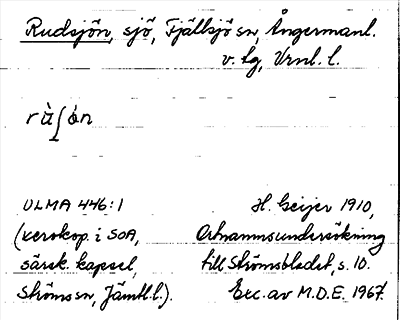 Rudsjön, sjö, Fjällsjö sn, Ångermanl.
v. lg, Vrnl. l.
rùʃón
ULMA 446:1
(xerokop. i SOA,
särsk. kapsel,
Ströms sn, Jämtl. l.).
H. Geijer 1910,
Ortnamnsundersökning
till Strömsbladet, s. 10.
Exc. av M.D.E. 1967.